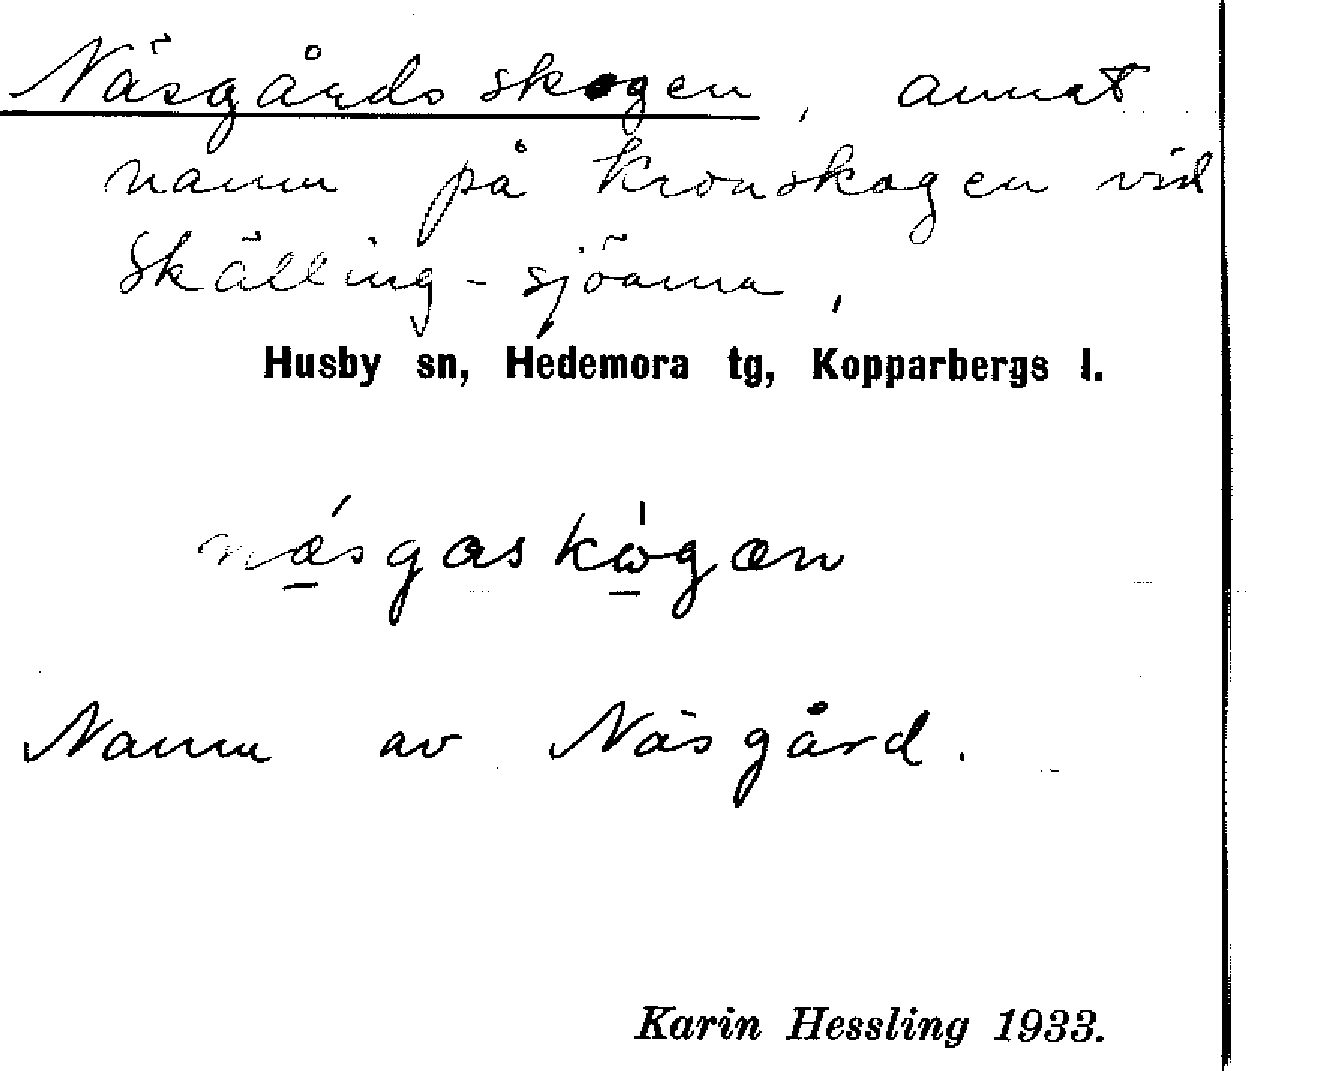 Näsgårdsskogen, annat
namn på kronskogen vid
Skälling-sjöarna,
Husby sn, Hedemora tg, Kopparbergs l.
nä́sgaskὼgæn
Namn av Näsgård.
Karin Hessling 1933.